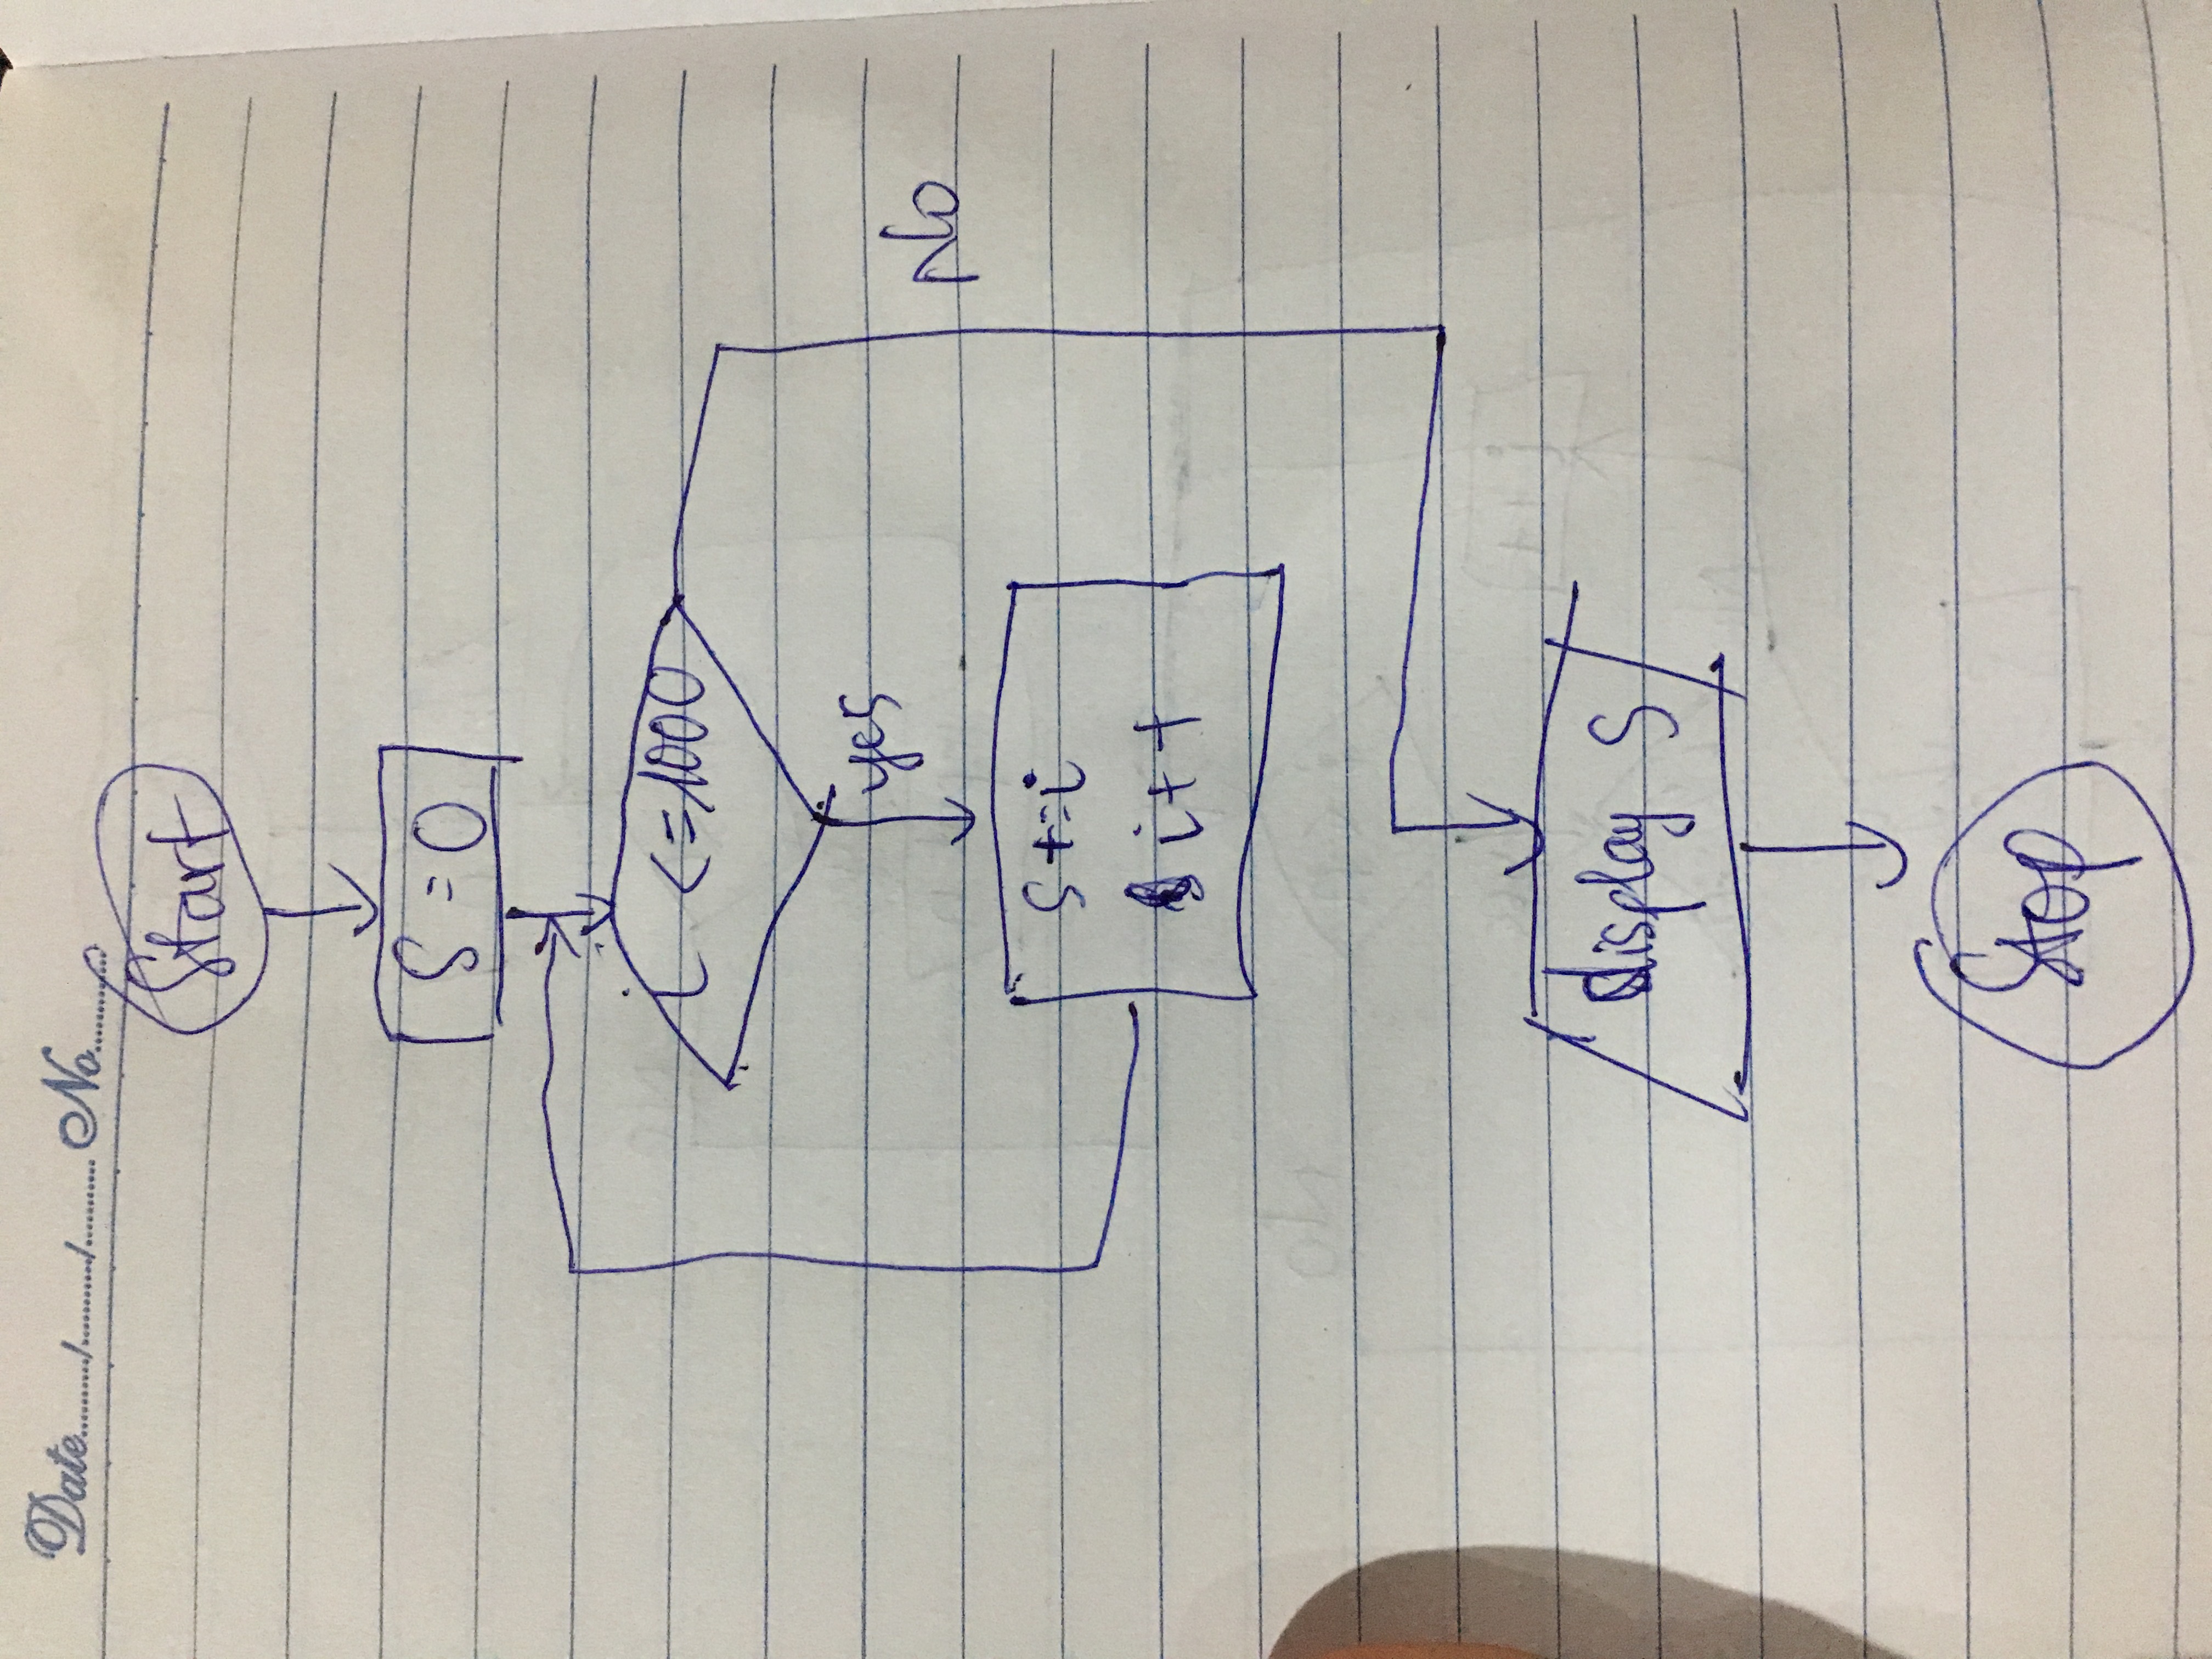 Date........../........../.......... No..........
Start
S = 0
i <=1000
yes
No
S+=i
i++
display S
Stop